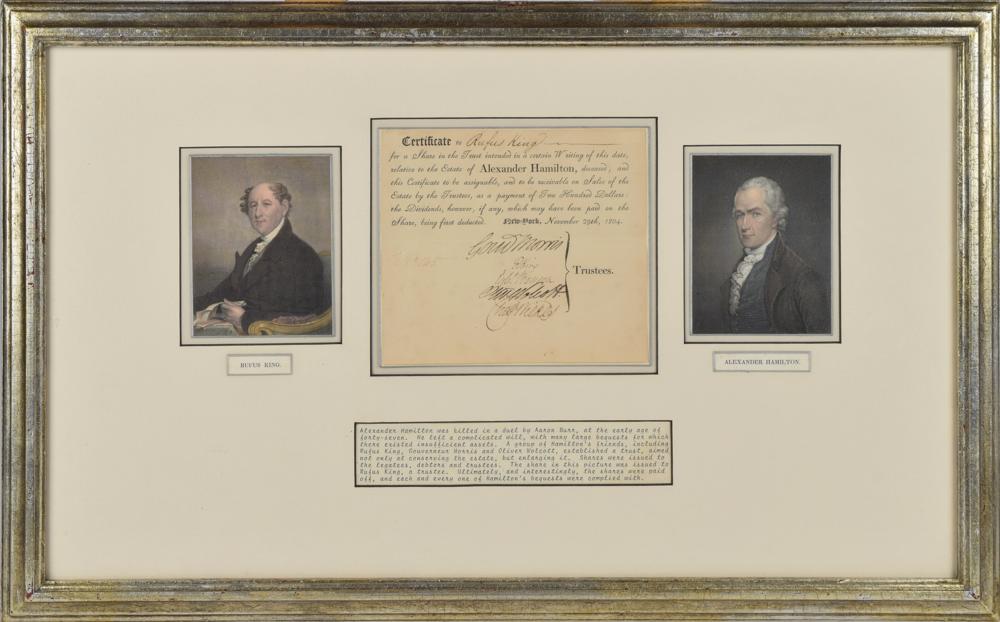 Certificate to Rufus King
for a Share in the Trust intended in a certain Writing of this date,
relative to the Estate of Alexander Hamilton, deceased; and
this Certificate to be assignable, and to be receivable on Sales of the
Estate by the Trustees, as a payment of Two Hundred Dollars:
the Dividends, however, if any, which may have been paid on the
Share, being first deducted. New-York, November 29th, 1804.
Gouv Morris
Trustees.
Oliv Wolcott
RUFUS KING.
ALEXANDER HAMILTON.
Alexander Hamilton was killed in a duel by Aaron Burr, at the early age of
forty-seven. He left a complicated will, with many large bequests for which
there existed insufficient assets. A group of Hamilton's friends, including
Rufus King, Gouverneur Morris and Oliver Wolcott, established a trust, aimed
not only at conserving the estate, but enlarging it. Shares were issued to
the legatees, debtors and trustees. The share in this picture was issued to
Rufus King, a trustee. Ultimately, and interestingly, the shares were paid
off, and each and every one of Hamilton's bequests were complied with.